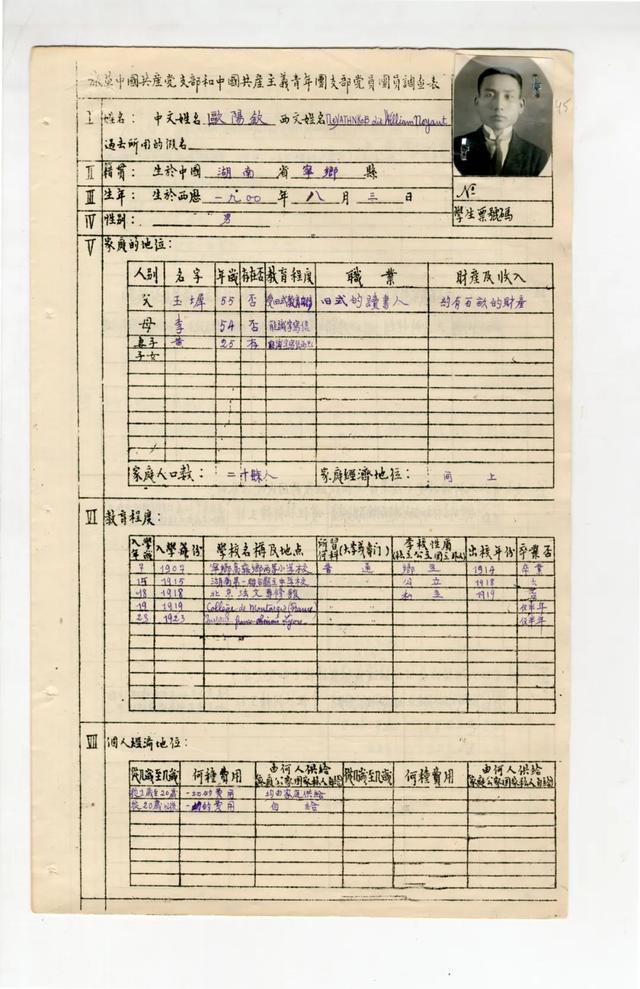 旅莫中國共產党支部和中國共產主義青年團支部党員團員調查表
45
I 姓名: 中文姓名 歐陽欽 西文姓名 dit William Noyant
過去所用的假名
II 籍貫: 生於中國 湖南 省 寧鄉 縣
III 生年: 生於西歷 一九00 年 八 月 三 日
№
學生票號碼
IV 性别: 男
V 家庭的地位:
人別 名字 年歲 存在否 教育程度 職業 財產及收入
父 玉墀 55 否 旧式的讀書人 約有百畝的財產
母 李 54 否 能識字寫信
妻子 黄 25 存
子女
家庭人口數: 二十餘人 家庭經濟地位: 向上
VI 教育程度:
入學年歲 入學年份 學校名稱及地点 所習何科(大學或專门) 學校性质 出校年份 卒業否
7 1907 小学校 普通 鄉立 1914 卒業
15 1915 湖南第一 中学校 " " 公立 1918
18 1918 北京法文專修館 " " 私立 1919 否
19 1919 Collège de Montargis France " " 仅半年
23 1923 Lyon " " 仅半年
VII 個人經濟地位:
從几歲至几歲 何種費用 由何人供给 從几歲至几歲 何種費用 由何人供给
從1歲至20歲 一切的費用 均由家庭供給
從20歲以後 的費用 自給